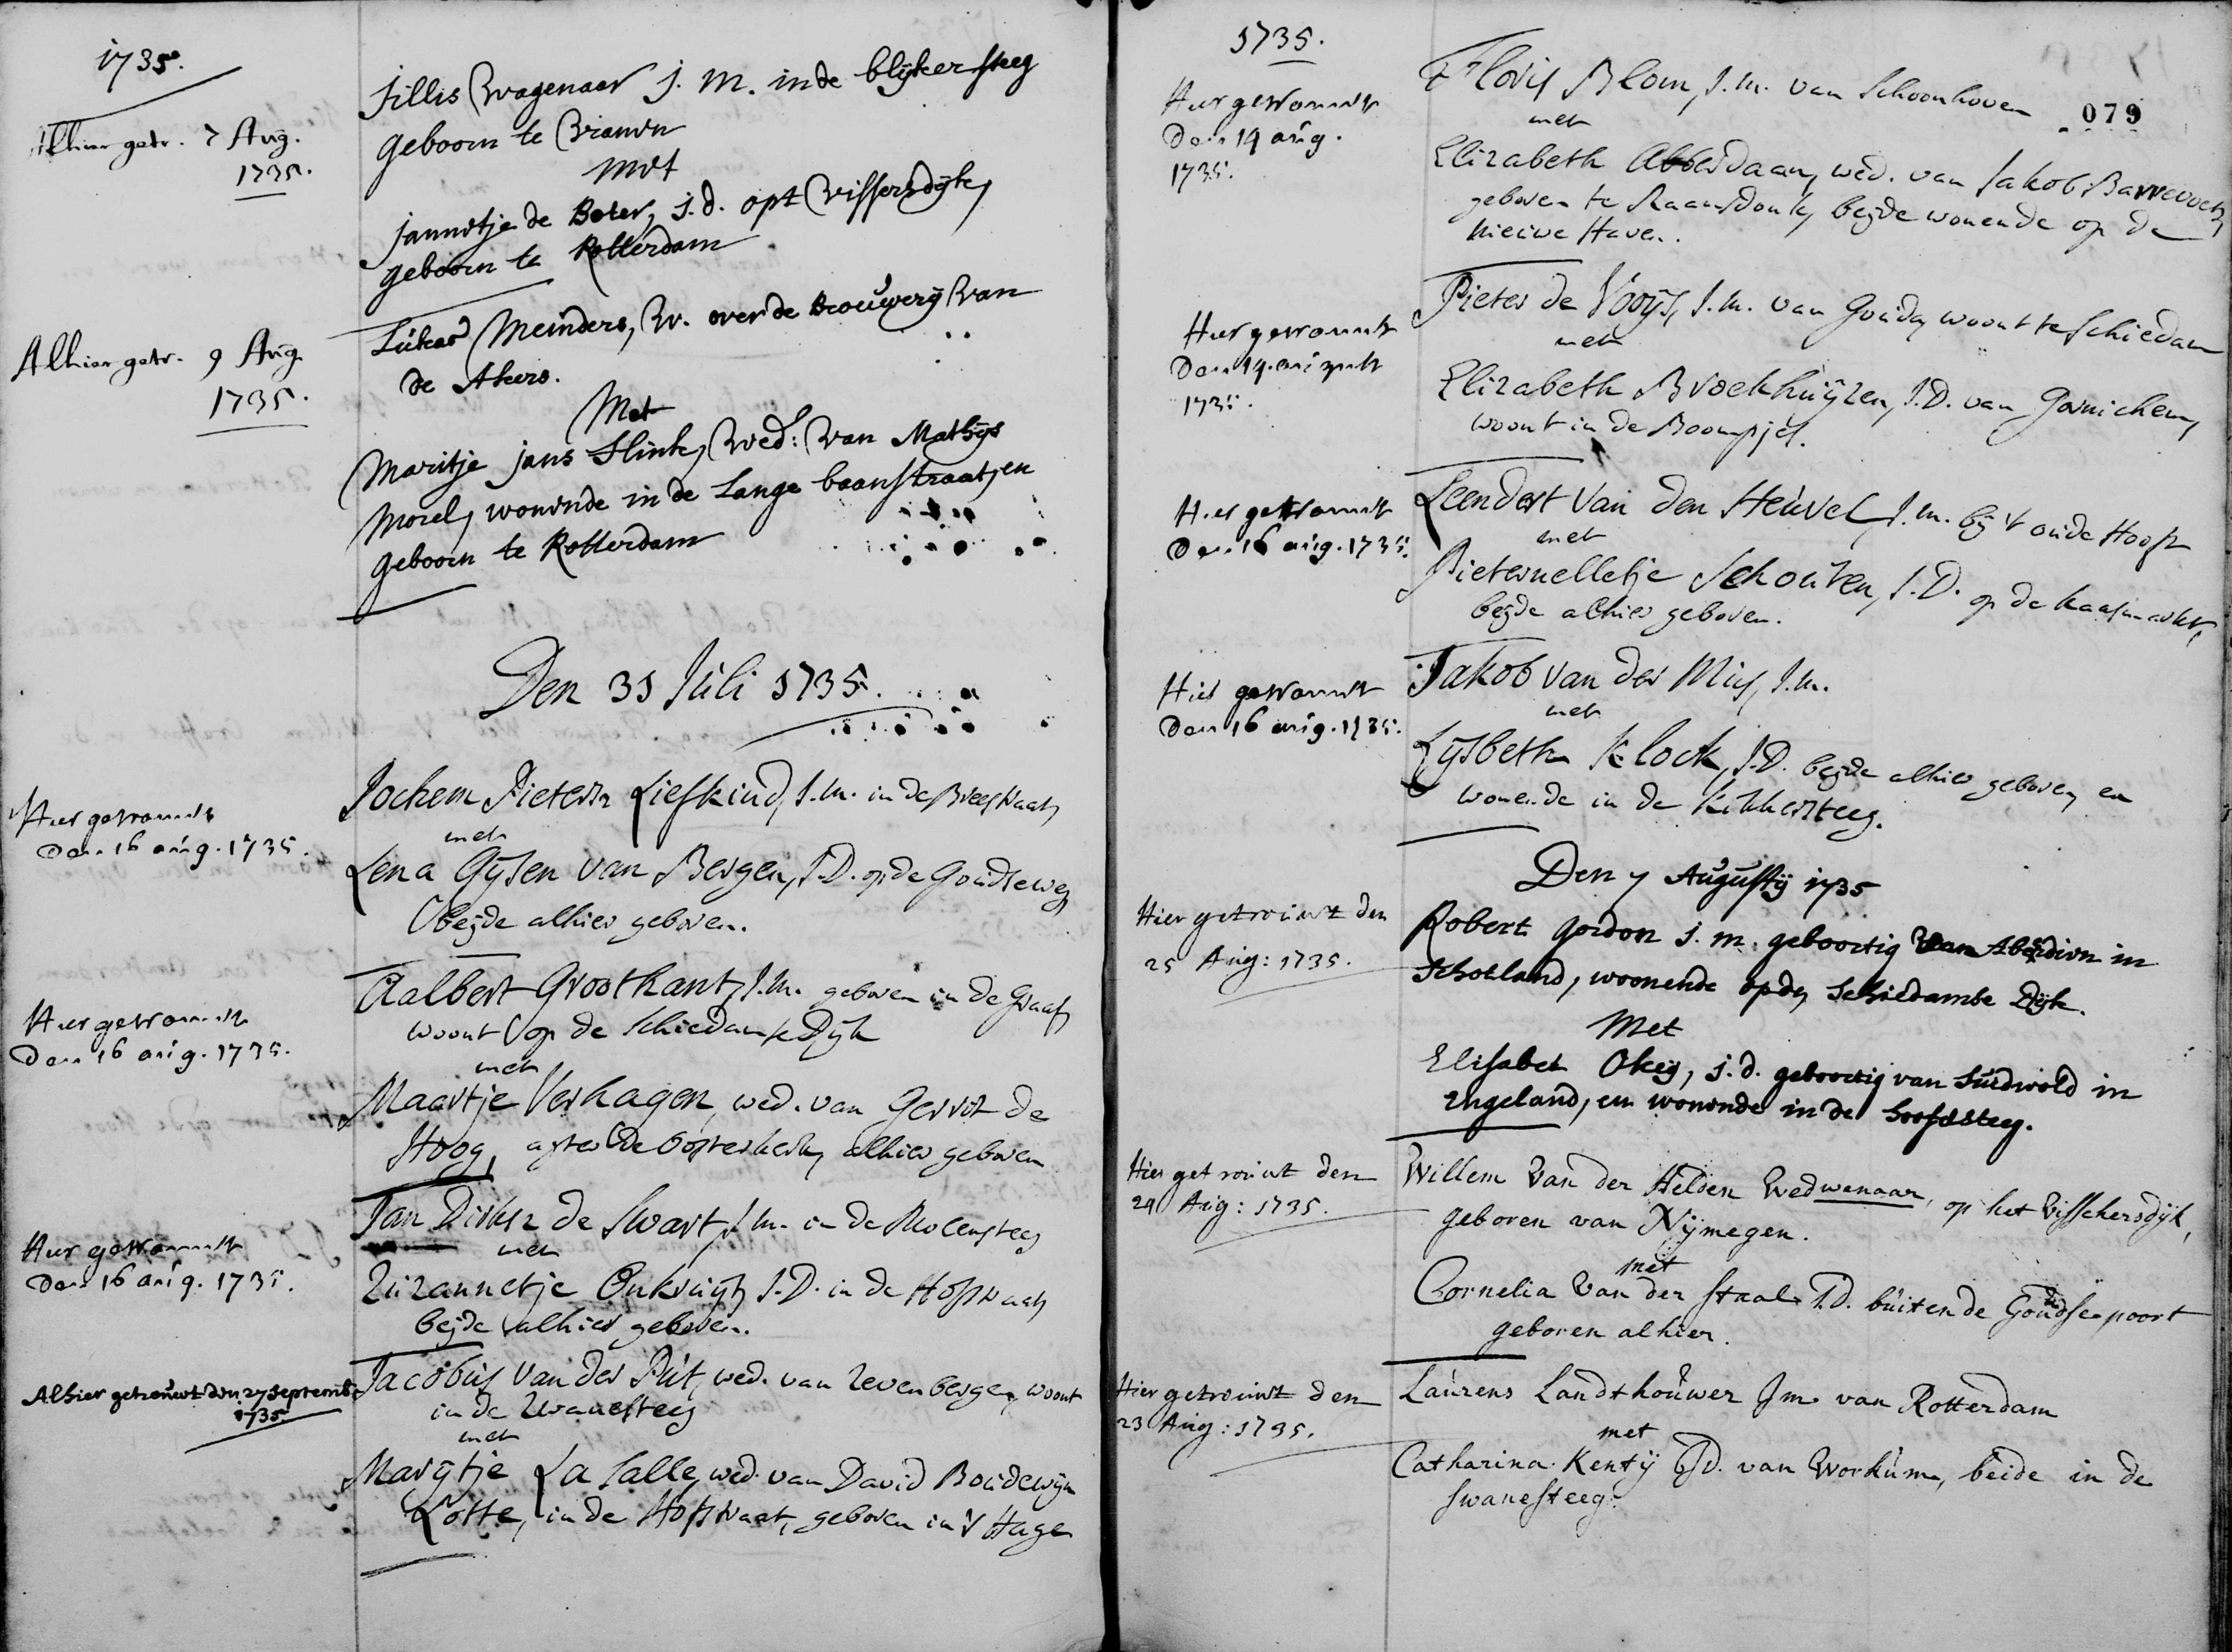 1735.
Alhier getr. 7 Aug.
1735.
Jillis Wagenaar j. m. in de blijkersteeg
geboorn te Vianen
met
jannetje de Boter, j. d. opt Vissersdijk,
geboorn te Rotterdam
Alhier getr. 9 Aug.
1735.
Lukas Meinders, W. over de Brouwerij van
de Akers.
Met
Maritje jans Slink, Wed: van Mathijs
Morel, wonende in de Lange baanstraatjen
geboorn te Rotterdam
Den 31 Juli 1735.
Hier getrouwt
den 16 aug. 1735.
Jochem Pietersz Liefkind, J.m. in de Breestraat,
met
Lena Gijsen van Bergen, J.D. op de Goudseweg
beijde alhier geboren.
Hier getrouwt
den 16 aug. 1735.
Aalbert Groothant, J.m. geboren in de Graaf,
woont op de Schiedamse Dijk
met
Maartje Verhagen, wed. van Gerrit de
Hoog, agter de Oosterkerk, alhier geboren
Hier getrouwt
den 16 aug. 1735.
Jan Dirksz de Swart, J.m. in de Molensteeg
met
Zuzannetje Onkruijt, J.D. in de Hofstraat,
beijde alhier geboren.
Alhier getrouwt den 27 Septemb.
1735
Jacobus van der Put, wed. van Zevenbergen, woont
in de Zwanesteeg
met
Marijtje La Salle, wed. van David Boudewijn
Lotte, in de Hofstraat, geboren in 's Hage
1735.
079
Hier getrouwt
den 14 aug.
1735.
Floris Blom, J.m. van Schoonhoven
met
Elizabeth Abbesdaan, wed. van Jakob Barrevoets,
geboren te Raamsdonk, beijde wonende op de
Nieuwe Haven.
Hier getrouwt
den 14. augusti
1735.
Pieter de Vooijs, J.m. van Gouda, woont te Schiedam
met
Elizabeth Broekhuijzen, J.D. van Gornichem,
woont in de Boompjes.
Hier getrouwt
den 16 aug. 1735.
Leendert van den Heuvel, J.m. bij 't oude Hooft
met
Pieternelletje Schouten, J.D. op de kaasmarkt,
beijde alhier geboren.
Hier getrouwt
den 16 aug. 1735.
Jakob van der Mis, J.m.
met
Lijsbeth Klock, J.D. beijde alhier geboren, en
wonende in de Kikkersteeg.
Den 7 Augustij 1735
Hier getrouwt den
25 Aug: 1735.
Robert Gordon j. m. geboortig van Aberdien in
Schotland, woonende op de Schiedamse Dijk.
Met
Elisabet Okeij, j. d. geboortig van Suidwold in
Engeland, en wonende in de hoofdsteeg.
Hier getrouwt den
24 Aug: 1735.
Willem van der Helden Wedwenaar, op het Visschersdijk,
geboren van Nijmegen.
met
Cornelia van der Staal J.D. buiten de Goudse poort
geboren alhier.
Hier getrouwt den
23 Aug: 1735.
Laurens Landthouwer Jm van Rotterdam
met
Catharina Kentij JD. van Workum, beide in de
Swanesteeg.